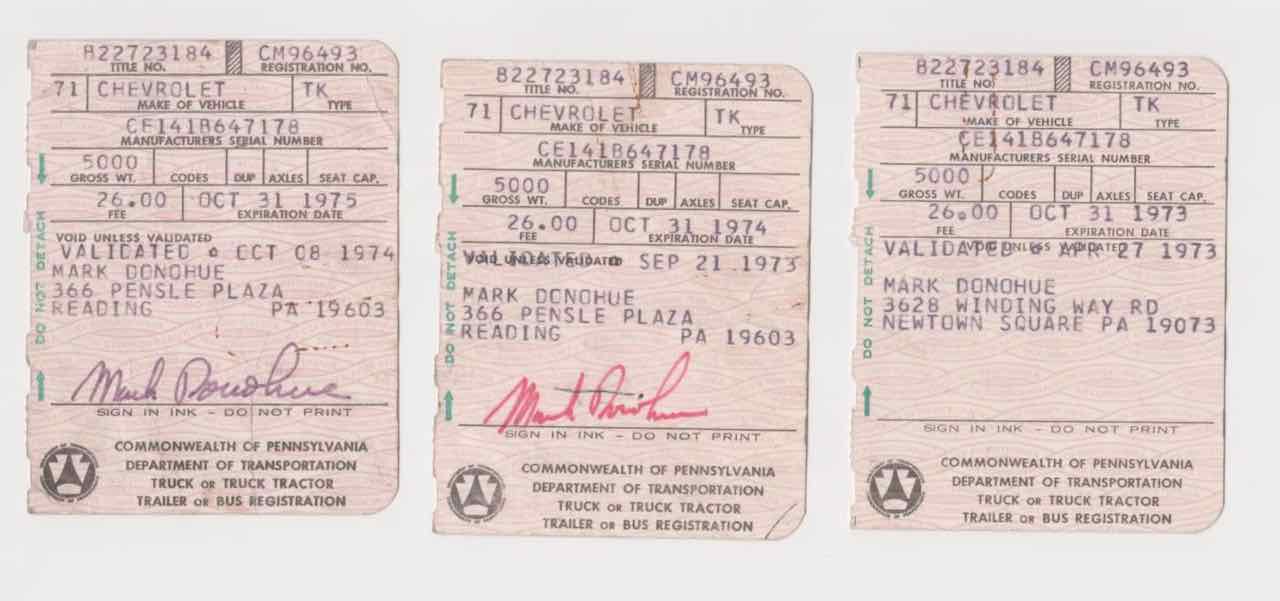 B22723184 CM96493
TITLE NO. REGISTRATION NO.
71 CHEVROLET TK
MAKE OF VEHICLE TYPE
CE141B647178
MANUFACTURERS SERIAL NUMBER
5000
GROSS WT. CODES DUP AXLES SEAT CAP.
26.00 OCT 31 1975
FEE EXPIRATION DATE
VOID UNLESS VALIDATED
VALIDATED OCT 08 1974
MARK DONOHUE
366 PENSLE PLAZA
READING PA 19603
DO NOT DETACH
Mark Donohue
SIGN IN INK - DO NOT PRINT
COMMONWEALTH OF PENNSYLVANIA
DEPARTMENT OF TRANSPORTATION
TRUCK OR TRUCK TRACTOR
TRAILER OR BUS REGISTRATION
B22723184 CM96493
TITLE NO. REGISTRATION NO.
71 CHEVROLET TK
MAKE OF VEHICLE TYPE
CE141B647178
MANUFACTURERS SERIAL NUMBER
5000
GROSS WT. CODES DUP AXLES SEAT CAP.
26.00 OCT 31 1974
FEE EXPIRATION DATE
VOID UNLESS VALIDATED
VALIDATED SEP 21 1973
MARK DONOHUE
366 PENSLE PLAZA
READING PA 19603
DO NOT DETACH
Mark Donohue
SIGN IN INK - DO NOT PRINT
COMMONWEALTH OF PENNSYLVANIA
DEPARTMENT OF TRANSPORTATION
TRUCK OR TRUCK TRACTOR
TRAILER OR BUS REGISTRATION
B22723184 CM96493
TITLE NO. REGISTRATION NO.
71 CHEVROLET TK
MAKE OF VEHICLE TYPE
CE141B647178
MANUFACTURERS SERIAL NUMBER
5000
GROSS WT. CODES DUP AXLES SEAT CAP.
26.00 OCT 31 1973
FEE EXPIRATION DATE
VOID UNLESS VALIDATED
VALIDATED APR 27 1973
MARK DONOHUE
3628 WINDING WAY RD
NEWTOWN SQUARE PA 19073
DO NOT DETACH
SIGN IN INK - DO NOT PRINT
COMMONWEALTH OF PENNSYLVANIA
DEPARTMENT OF TRANSPORTATION
TRUCK OR TRUCK TRACTOR
TRAILER OR BUS REGISTRATION